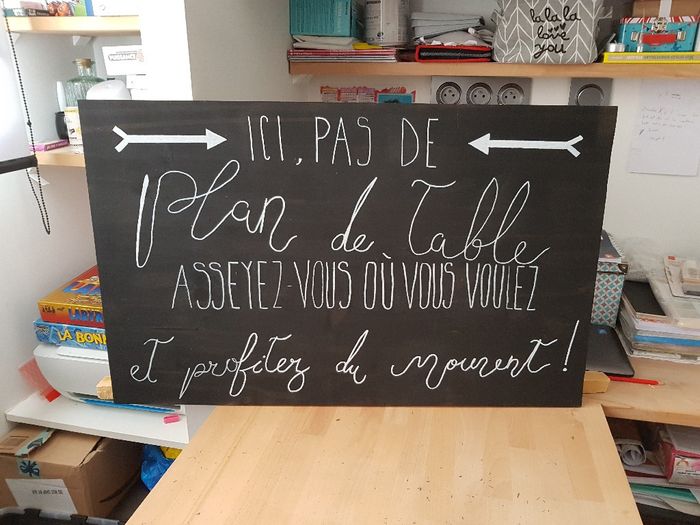 la la la
love
you
ICI, PAS DE
Plan de Table
ASSEYEZ-VOUS OÙ VOUS VOULEZ
et profitez du moment !
LABY
LA BONN